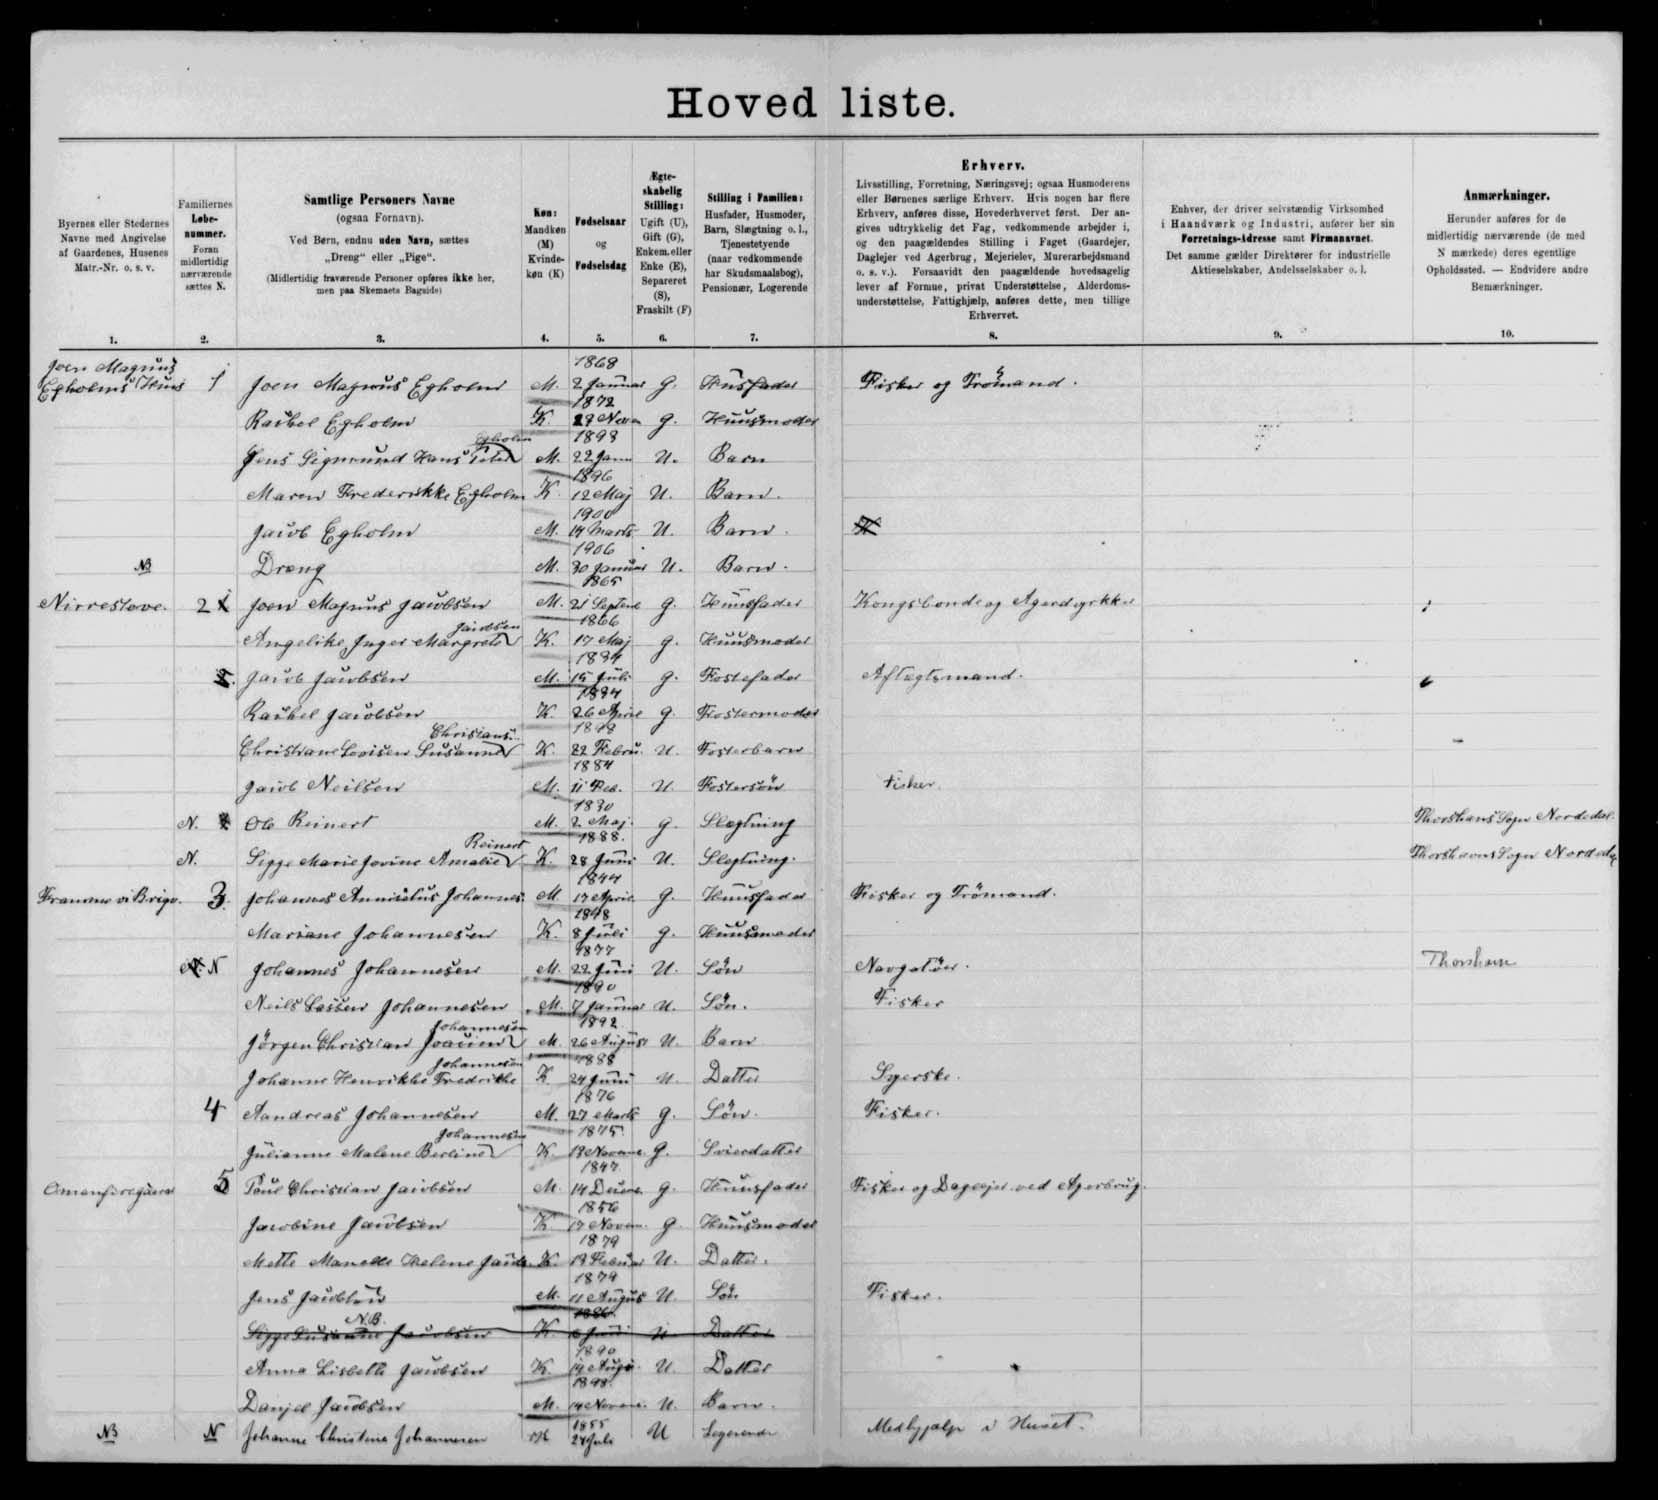 Hovedliste.
Byernes eller Stedernes
Navne med Angivelse
af Gaardenes, Husenes
Matr.-Nr. o. s. v.
Familiernes
Løbe-
nummer.
Foran
midlertidig
nærværende
sættes N.
Samtlige Personers Navne
(ogsaa Fornavn).
Ved Børn, endnu uden Navn, sættes
„Dreng“ eller „Pige“.
(Midlertidig fraværende Personer opføres ikke her,
men paa Skemaets Bagside)
Køn:
Mandkøn
(M)
Kvinde-
køn (K)
Fødselsaar
og
Fødselsdag
Ægte-
skabelig
Stilling:
Ugift (U),
Gift (G),
Enkem. eller
Enke (E),
Separeret
(S),
Fraskilt (F)
Stilling i Familien:
Husfader, Husmoder,
Barn, Slægtning o. l.,
Tjenestetyende
(naar vedkommende
har Skudsmaalsbog),
Pensionær, Logerende
Erhverv.
Livsstilling, Forretning, Næringsvej; ogsaa Husmoderens
eller Børnenes særlige Erhverv. Hvis nogen har flere
Erhverv, anføres disse, Hovederhvervet først. Der an-
gives udtrykkelig det Fag, vedkommende arbejder i,
og den paagældendes Stilling i Faget (Gaardejer,
Daglejer ved Agerbrug, Mejerielev, Murerarbejdsmand
o. s. v.). Forsaavidt den paagældende hovedsagelig
lever af Formue, privat Understøttelse, Alderdoms-
understøttelse, Fattighjælp, anføres dette, men tillige
Erhvervet.
Enhver, der driver selvstændig Virksomhed
i Haandværk og Industri, anfører her sin
Forretnings-Adresse samt Firmanavnet.
Det samme gælder Direktører for industrielle
Aktieselskaber, Andelsselskaber o. l.
Anmærkninger.
Herunder anføres for de
midlertidig nærværende (de med
N mærkede) deres egentlige
Opholdssted. — Endvidere andre
Bemærkninger.
1. 2. 3. 4. 5. 6. 7. 8. 9. 10.
Joen Magnus 1868
Egholms Huus 1 Joen Magnus Egholm M. 2 Januar G. Husfader Fisker og Trömand.
1872
Egholm K. Novem G. Huusmoder
Egholm 1893
Jens Sigmund Hans Peter M. 22 Janu U. Barn
1896
Maren Frederikke Egholm K. 12 Maj U. Barn.
1900
Jacob Egholm M. 14 Marts U. Barn.
1906
NB Dreng M. 30 Januar U. Barn.
1865
2 Joen Magnus Jacobsen M. 21 Septem G. Huusfader Kongsbonde og Agerdyrkker
Jacobsen 1866
Angelike Inger Margrete K. 17 Maj G. Huusmoder
Jacob Jacobsen M. 15 Juli G. Fostefader Aftægtsmand.
Jacobsen K. 26 April G. Fostermoder
Susanne K. 22 Febru. U. Fosterbarn
1884
Jacob Neilsen M. 11 U. Fostersön Fisker.
1830
N. Ole Reinert M. 2 Maj. G. Slægtning Sogn
Reinert 1888.
N. Sigge Marie Jovine Amalie K. 28 Juni U. Slegtning. Thorshavns Sogn
1844
3 Johannes Johannes. M. 17 April G. Huusfader Fisker og Trömand.
1848
Mariane Johannesen K. 8 Juli G. Huusmoder
1877
N Johannes Johannesen M. 22 Juni U. Sön Thorshavn
1890
Neils Johannesen M. 7 Januar U. Sön. Fisker
Johannesen 1892
Jörgen Christian Joacim M. 26 August U. Barn
Johannesen 1888
Johanne Henrikke Fredrikke K. 24 Juni U. Datter Syerske.
1876
4 Aandreas Johannesen M. 27 Marts G. Sön. Fisker.
Johannesen 1875
Julianne Malene Berline K. 19 Novem. G. Sviedatter
1847
5 Poul Christian Jacobsen M. 14 G. Huusfader Fisker og Daglejer ved Agerbrug.
1856
Jacobine Jacobsen K. 17 Novem. G. Huusmoder
1879
Mette Helene K. 19 Februar U. Datter.
1879
Jens Jacobsen M. 11 August U. Sön Fisker.
N.B.
Sigge Susanne Jacobsen K. Juni U Datter
1890
Anna Lisbeth Jacobsen K. 19 U. Datter
1898.
Danjel Jacobsen M. 14 Novem. U. Barn.
1855
NB N Johanne Christina Johannesen 24 Juli U Logerende Medhjælp i Huset.